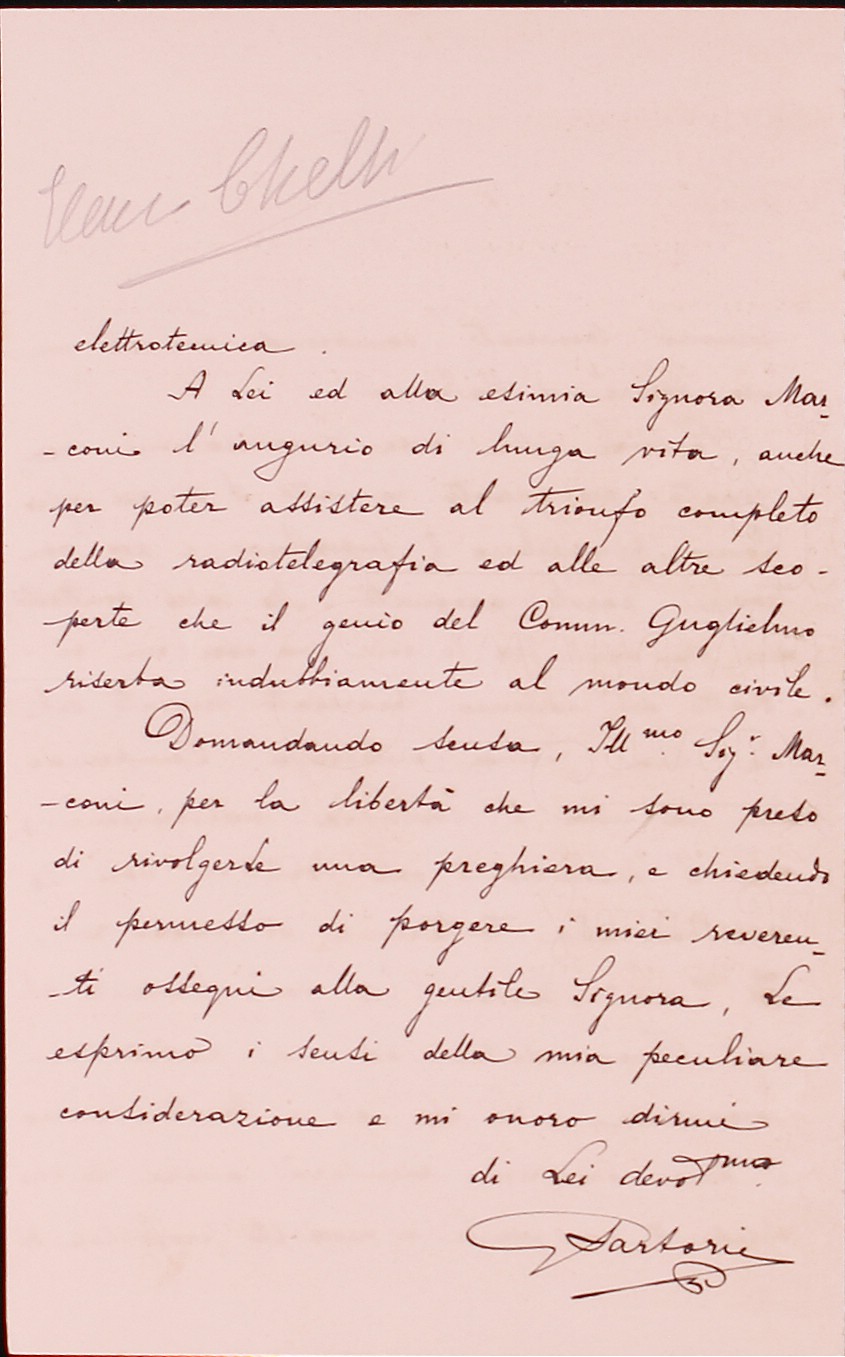 elettrotecnica.
A Lei ed alla esimia Signora Mar-
-coni l'augurio di lunga vita, anche
per poter assistere al trionfo completo
della radiotelegrafia ed alle altre sco-
-perte che il genio del Comm. Guglielmo
riserba indubbiamente al mondo civile.
Domandando scusa, Ill.mo Sig.r Mar-
-coni, per la libertà che mi sono preso
di rivolgerLe una preghiera, e chiedendo
il permesso di porgere i miei reveren-
-ti ossequi alla gentile Signora, Le
esprimo i sensi della mia peculiare
considerazione e mi onoro dirmi
di Lei devotmo
G Sartori